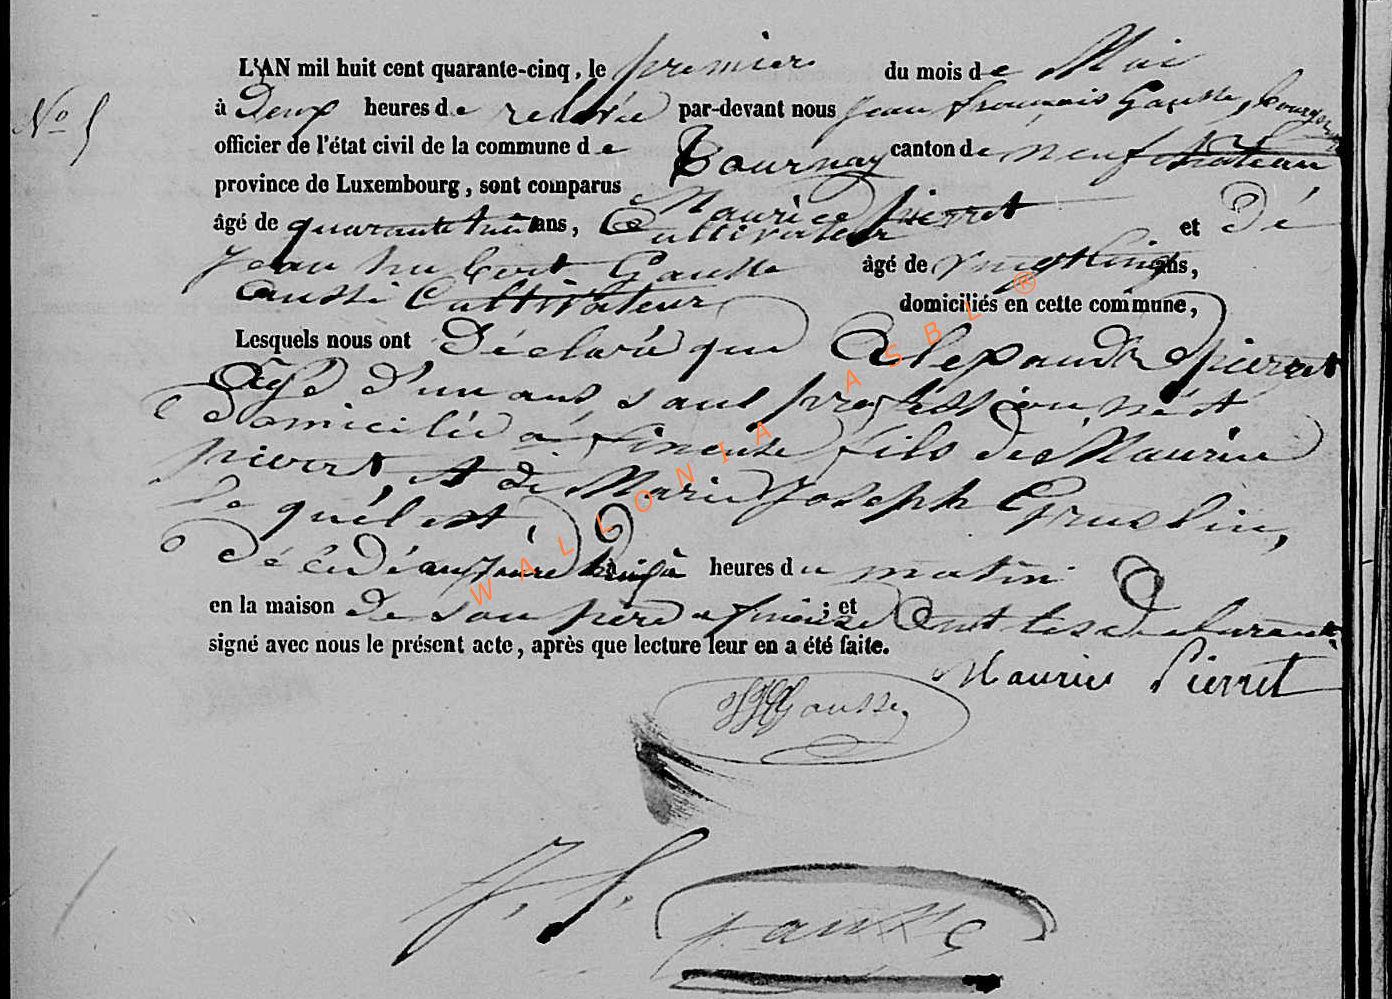 L'AN mil huit cent quarante-cinq, le premier du mois de Mai
N° 5
à Deux heures de relevée par-devant nous jean françois Gausse, bourgm
officier de l'état civil de la commune de Tournay canton de neufchateau
province de Luxembourg, sont comparus Maurice pierret
âgé de quarante huit ans, Cultivateur et De
jean hubert Gausse âgé de vingt cinq ans,
aussi Cultivateur domiciliés en cette commune,
Lesquels nous ont Déclaré que Alexandre pierret
Agé d'un ans sans profession né et
Domicilié a fineuse fils de Maurice
pierret, et de Marie joseph Gruslin,
le quél est,
Décédé aujourd'hui à heures du matin
en la maison de son pere a fineuse; et ont les declarant
signé avec nous le présent acte, après que lecture leur en a été faite.
Maurice Pierret
JH Gausse
J. f. Gausse
WALLONIA ASBL ®